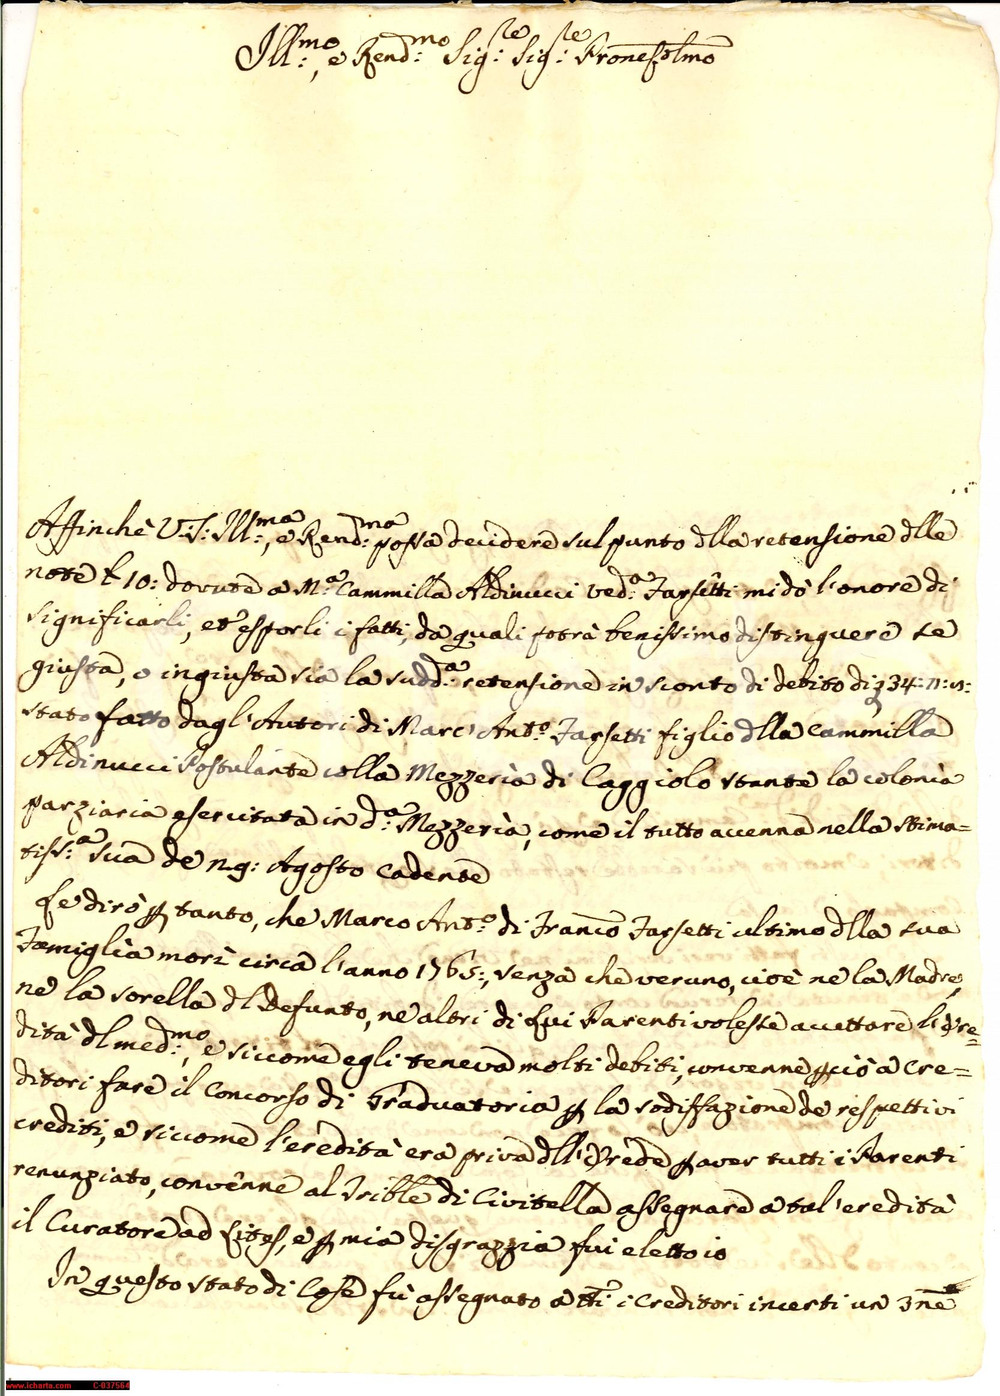 Ill:mo, e Rend:mo Sig:re Sig:re Pronesolmo
Affinchè V:S: Ill:ma, e Rend:ma possa decidere sul punto dlla retensione dlle
note £ 10: dovute a M.a Cammilla Aldinucci ved:a Farsetti mi dò l'onore di
significarli, et esporli i fatti, da quali potrà benissimo distinguere se
giusta, o ingiusta sia la sudd:a retensione in sconto di debito di 34:
stato fatto dagl'Autori di Marc'Ant:o Farsetti figlio dlla Cammilla
Aldinucci Postulante colla Mezzeria di Caggiolo stante la colonia
parziaria esercitata in d:a Mezzeria, come il tutto accenna nella stima=
tiss:a sua de 29: Agosto cadente
Le dirò p tanto, che Marco Ant:o di Franc:o Farsetti ultimo dlla sua
Famiglia morì circa l'anno 1765:, senza che veruno, cioè ne la Madre,
ne la sorella dl Defunto, ne altri di Lui Parenti volesse accettare l'Ere=
dità dl med:mo, e siccome egli teneva molti debiti, convenne p ciò a Cre=
ditori fare il Concorso di Graduatoria p la sodisfazione de respettivi
crediti, e siccome l'eredità era priva dll'Erede p aver tutti i Parenti
renunziato, convenne al Trible di Civitella assegnare a tal'eredità
il Curatore ad Lites, e p mia disgrazzia fui eletto io
In questo stato di Cose fù assegnato a tti i Creditori incerti un 3ne
www.icharta.com C-037564